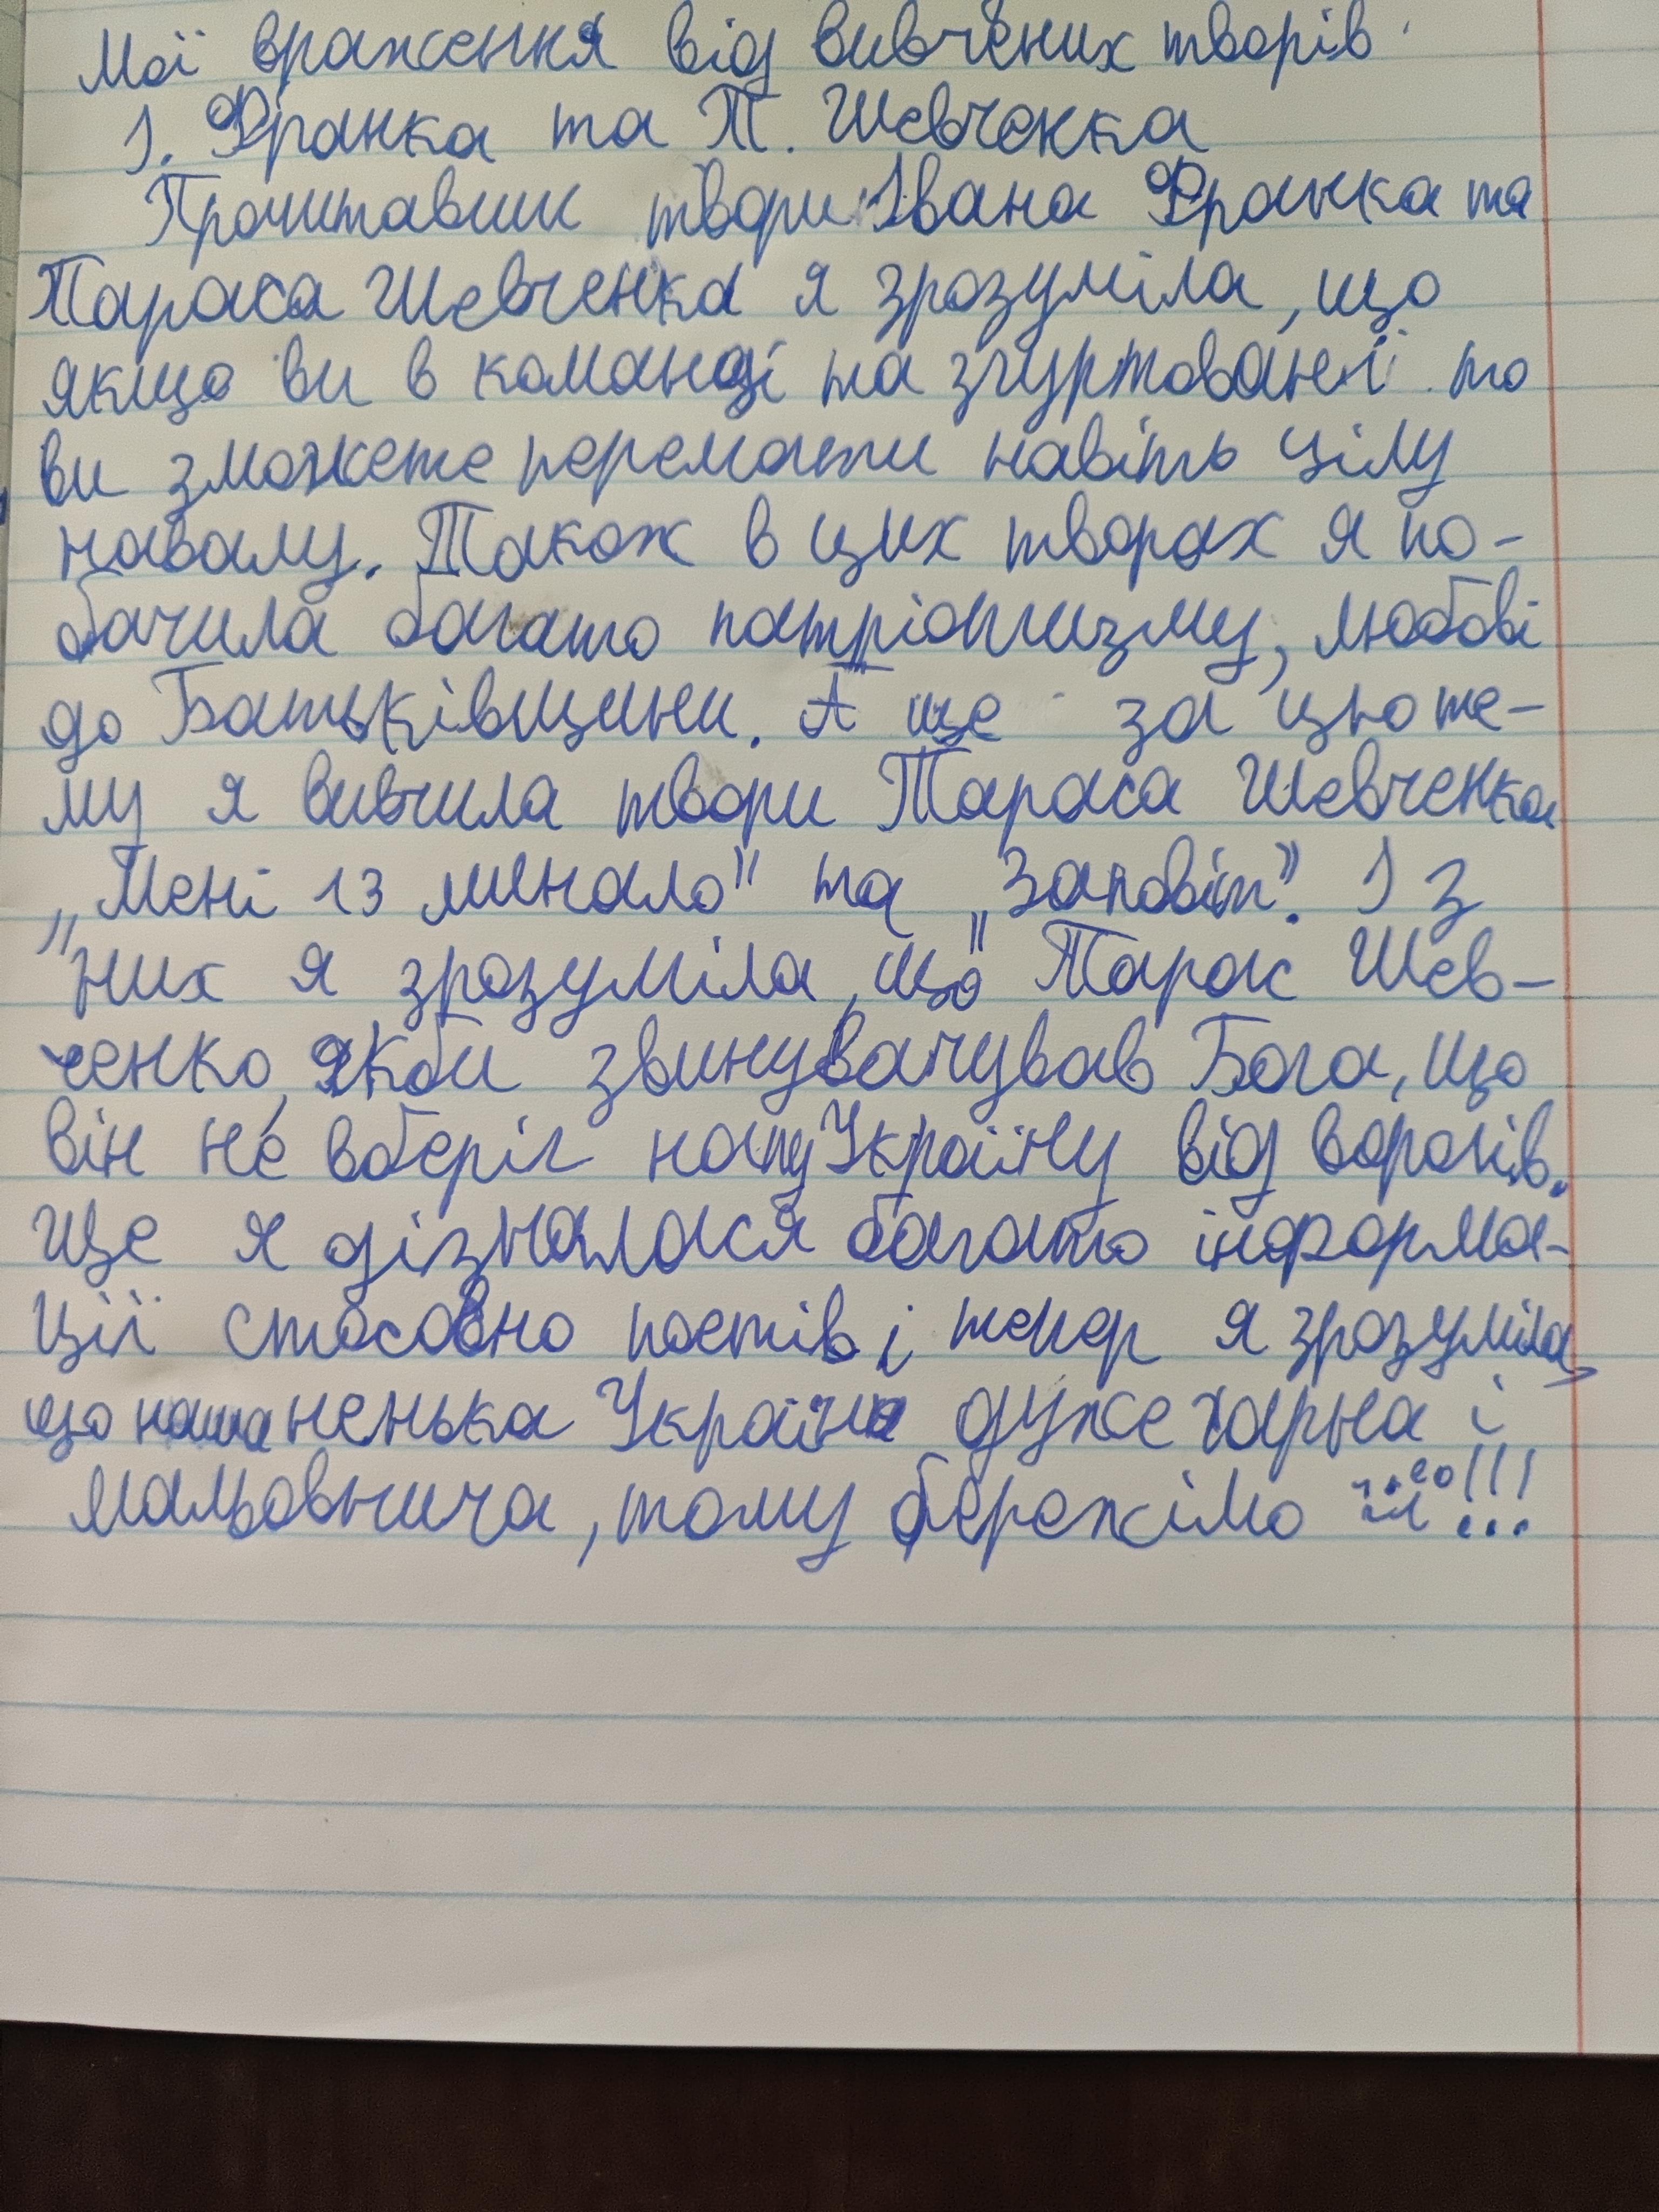 Мої враження від вивчених творів
І. Франка та Т. Шевченка
Прочитавши твори Івана Франка та
Тараса Шевченка я зрозуміла, що
якщо ви в команді та згуртовані то
ви зможете перемогти навіть цілу
навалу. Також в цих творах я по-
бачила багато патріотизму, любові
до Батьківщини. А ще за цю те-
му я вивчила твори Тараса Шевченка
„Мені 13 минало" та „Заповіт". І з
них я зрозуміла, що Тарас Шев-
ченко, якби звинувачував Бога, що
він не вберіг нашу Україну від ворогів.
Ще я дізналася багато інформа-
ції стосовно поетів і тепер я зрозуміла,
що наша ненька Україна дуже гарна і
мальовнича, тому бережімо !!!